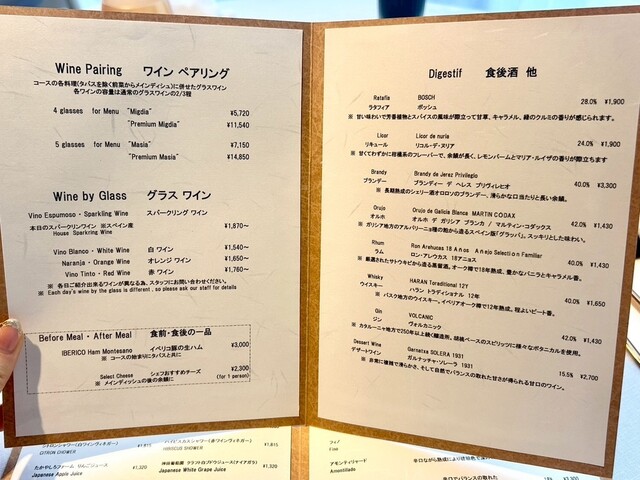 Wine Pairing ワイン ペアリング
コースの各料理(タパスを除く前菜からメインディシュ)に併せたグラスワイン
各ワインの容量は通常のグラスワインの2/3程
4 glasses for Menu "Migdia" ¥5,720
"Premium Migdia" ¥11,540
5 glasses for Menu "Masia" ¥7,150
"Premium Masia" ¥14,850
Wine by Glass グラス ワイン
Vino Espumoso・Sparkling Wine スパークリング ワイン
本日のスパークリンワイン ※スペイン産 ¥1,870~
House Sparkring Wine
Vino Blanco・White Wine 白 ワイン ¥1,540~
Naranja・Orange Wine オレンジ ワイン ¥1,650~
Vino Tinto・Red Wine 赤 ワイン ¥1,760~
※ 各日ご紹介出来るワインが異なる為、スタッフにお問い合わせください。
※ Each day's wine by the glass is different , so please ask our staff for details
Before Meal・After Meal 食前・食後の一品
IBERICO Ham Montesano イベリコ豚の生ハム ¥3,000
※ コースの始まりにタパスと共に
Select Cheese シェフおすすめチーズ ¥2,300
※ メインディッシュの後の余韻に (for 1 person)
Digestif 食後酒 他
Ratafia BOSCH 28.0% ¥1,900
ラタフィア ボッシュ
※ 甘い味わいで芳香植物とスパイスの風味が際立って甘草、キャラメル、緑のクルミの香りが感じられます。
Licor Licor de nuria 24.0% ¥1,900
リキュール リコル・デ・ヌリア
※ 甘くてわずかに柑橘系のフレーバーで、余韻が長く、レモンバームとマリア・ルイザの香りが際立ちます
Brandy Brandy de Jerez Privilegio 40.0% ¥3,300
ブランデー ブランディー デ ヘレス プリヴィレヒオ
※ 長期熟成のシェリー酒オロロソのブランデー、滑らかな口当たりと長い余韻。
Orujo Orujo de Galicia Blanca MARTIN CODAX 42.0% ¥1,430
オルホ オルホ デ ガリシア ブランカ / マルティン・コダックス
※ ガリシア地方のアルバリーニョ種の粕から造るスペイン版「グラッパ」。スッキリとした味わい。
Rhum Ron Arehuces 18 Anos Anejo Selection Familiar 40.0% ¥1,430
ラム ロン・アレウカス 18アニョス
※ 厳選されたサトウキビから造る蒸留酒。オーク樽で18年熟成、豊かなバニラとキャラメル香。
Whisky HARAN Toraditional 12Y 40.0% ¥1,650
ウイスキー ハラン トラディショナル 12年
※ バスク地方のウイスキー。イベリアオーク樽で12年熟成。程よいビート香。
Gin VOLCANIC 42.0% ¥1,430
ジン ヴォルカニック
※ カタルーニャ地方で250年以上続く醸造所。胡桃ベースのスピリッツに様々なボタニカルを使用。
Dessert Wine Garnatxa SOLERA 1931 15.5% ¥2,700
デザートワイン ガルナッチャ・ソレーラ 1931
※ 非常に複雑で滑らかさ、そして自然でバランスの取れた甘さが得られる甘口のワイン。
シトロンシャワー(白ワインヴィネガー) ¥1,815
CITRON SHOWER
ハイビスカスシャワー(赤ワインヴィネガー) ¥1,815
HIBISCUS SHOWER
たかやしろファーム りんごジュース ¥1,320
Japanese Apple Juice
神田葡萄園 クラフト白ブドウジュース(ナイアガラ) ¥1,320
Japanese White Grape Juice
フィノ
Fino
アモンティリャード
Amontillado